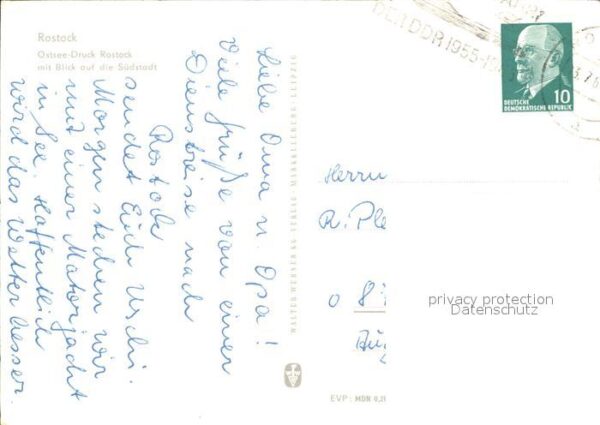 Rostock
Ostsee-Druck Rostock
mit Blick auf die Südstadt
Liebe Oma u. Opa!
Viele Grüße von einer
Dienstreise nach
Rostock
sendet Euch Uschi.
Morgen stechen wir
mit einer Motorjacht
in See. Hoffentlich
wird das Wetter besser.
WALTER WERNER KG VERLAG · MARKKLEEBERG-LEIPZIG
EVP: MDN 0,2
DER DDR 1955-1
DEUTSCHE
DEMOKRATISCHE REPUBLIK
10
Herrn
R. Ple
privacy protection
Datenschutz